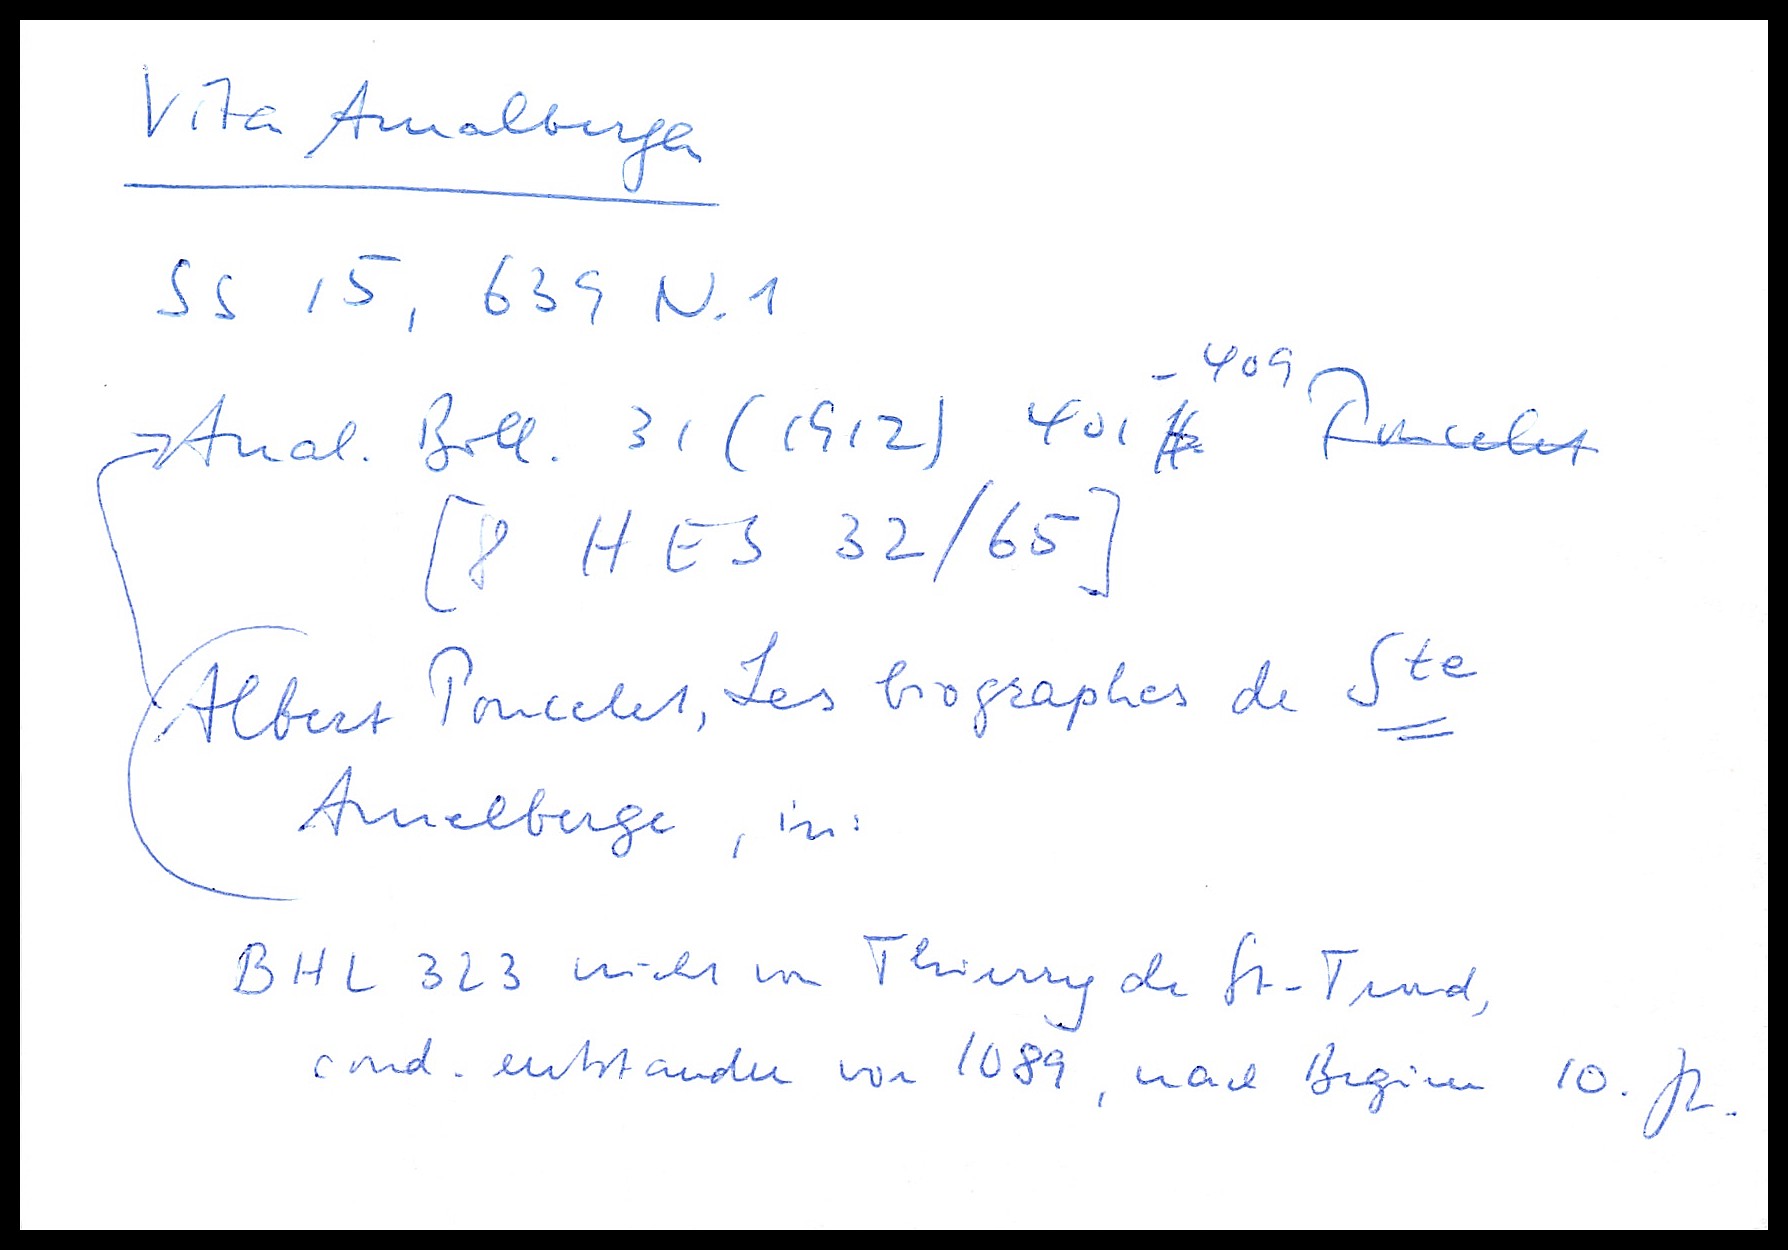 Vita Amalberga
SS 15, 639 N. 1
Anal. Boll. 31 (1912) 401 -409 Poncelet
[8 H ES 32/65]
Albert Poncelet, Les biographes de Ste
Amelberge, in:
BHL 323 nicht von Thierry de St-Trond,
sond. entstanden vor 1089, nach Beginn 10. Jh.